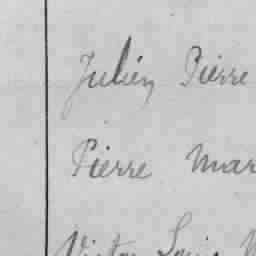 Julien Pierre
Pierre Mar
Victor Louis